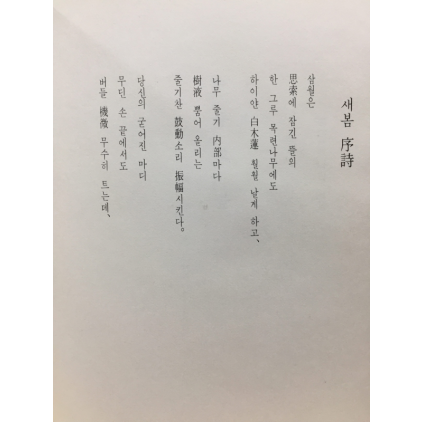 새봄 序詩
삼월은
思索에 잠긴 뜰의
한 그루 목련나무에도
하이얀 白木蓮 훨훨 날게 하고、
나무 줄기 內部마다
樹液 뿜어 올리는
줄기찬 鼓動소리 振幅시킨다。
당신의 굳어진 마디
무딘 손 끝에서도
버들 機微 무수히 트는데、